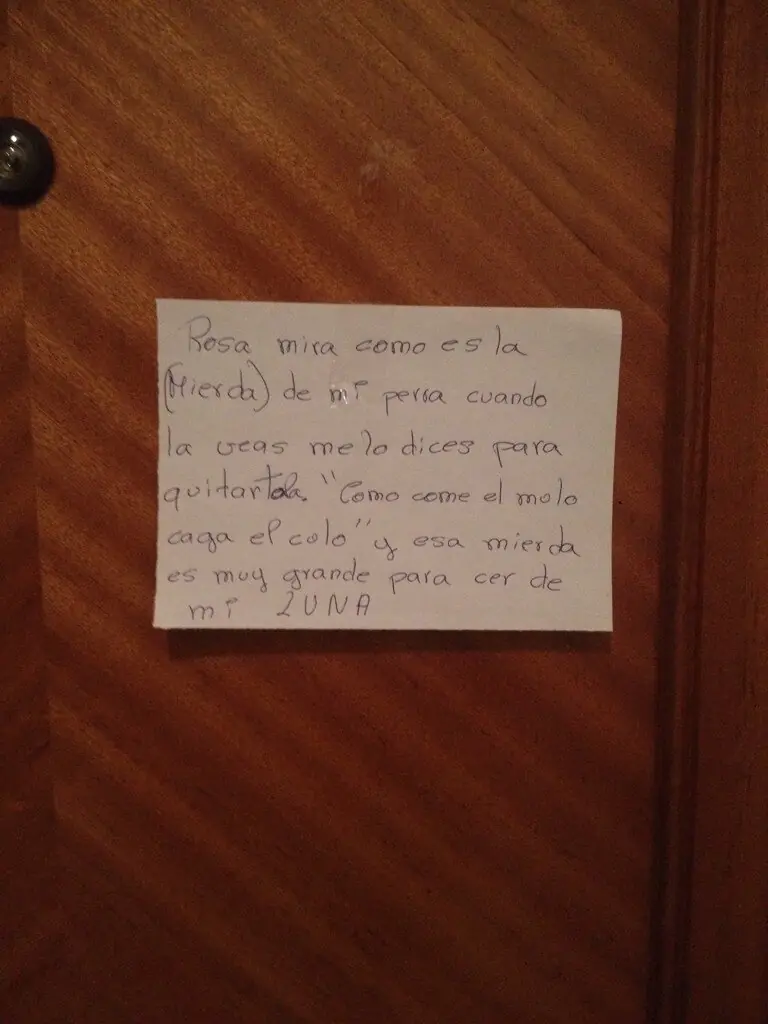 Rosa mira como es la
(Mierda) de mi perra cuando
la veas me lo dices para
quitartela. "Como come el molo
caga el colo" y esa mierda
es muy grande para cer de
mi LUNA